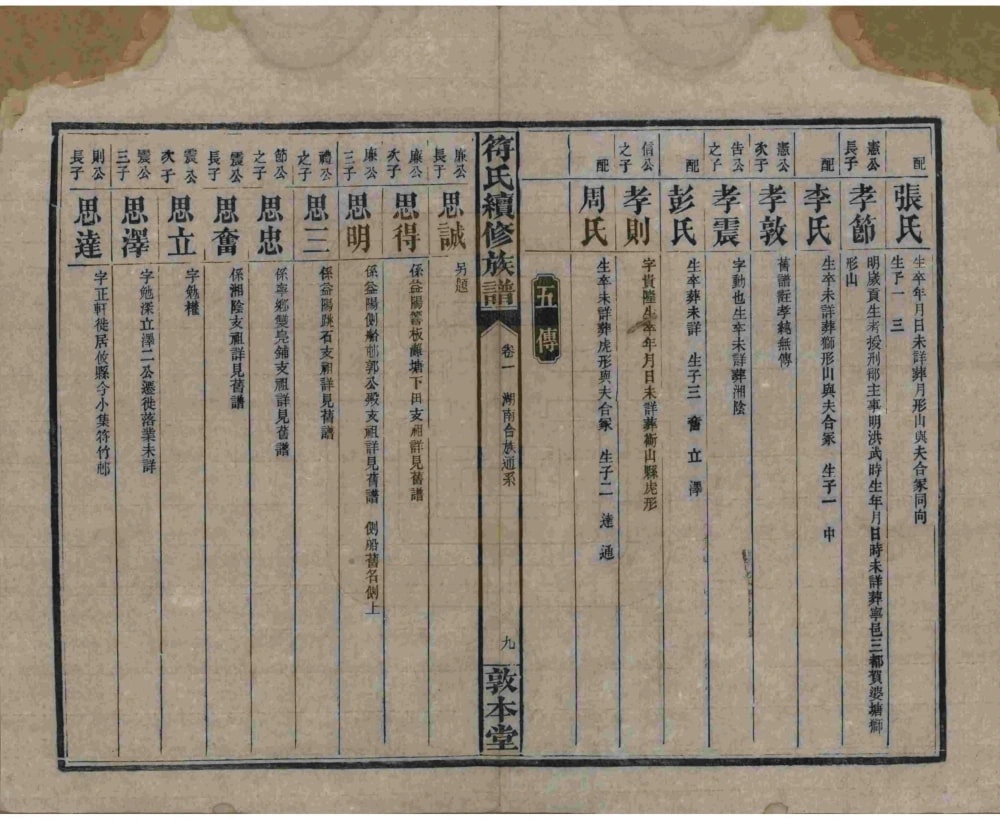 配
張氏
生卒年月日未詳葬月形山與夫合冢同向
生子一 三
憲公
長子
孝節
明歲貢生考授刑部主事明洪武時生年月日時未詳葬寧邑三都賀婆塘獅
形山
配
李氏
生卒未詳葬獅形山與夫合冢 生子一 中
憲公
次子
孝敦
舊譜註孝純無傳
告公
之子
孝震
字動也生卒未詳葬湘陰
配
彭氏
生卒葬未詳 生子三 奮 立 澤
信公
之子
孝則
字貴隆生卒年月日未詳葬衡山縣虎形
配
周氏
生卒未詳葬虎形與夫合冢 生子二 達 通
五傳
符氏續修族譜
卷一 湖南合族通系
九
敦本堂
廉公
長子
思誠
另題
廉公
次子
思得
係益陽響板 塘下田支祖詳見舊譜
廉公
三子
思明
係益陽側船郭公殿支祖詳見舊譜 側船舊名側上
禮公
之子
思三
係益陽跳石支祖詳見舊譜
節公
之子
思忠
係寧鄉雙鳧鋪支祖詳見舊譜
震公
長子
思奮
係湘陰支祖詳見舊譜
震公
次子
思立
字勉權
震公
三子
思澤
字勉深立澤二公遷徙落業未詳
則公
長子
思達
字正軒徙居攸縣今小集符竹